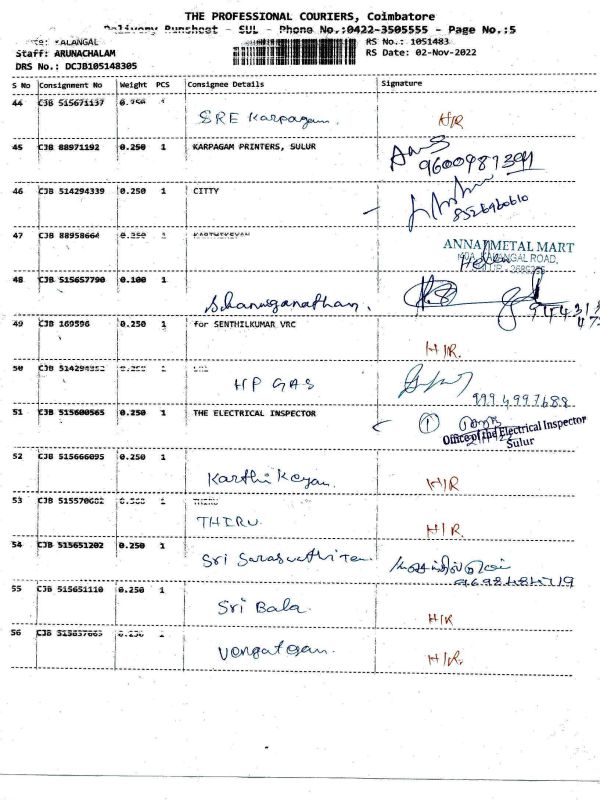 THE PROFESSIONAL COURIERS, Coimbatore
Delivery Runsheet - SUL - Phone No.:0422-3505555 - Page No.:5
KALANGAL
RS No.: 1051483
Staff: ARUNACHALAM
RS Date: 02-Nov-2022
DRS No.: DCJB105148305
S No Consignment No Weight PCS Consignee Details Signature
44 CJB 515671137 0.250 1
SRE Karpagam H/R
45 CJB 88971192 0.250 1 KARPAGAM PRINTERS, SULUR
9600987391
46 CJB 514294339 0.250 1 CITTY
47 CJB 88958664 0.250 1 KARTHIKEYAN
ANNAI METAL MART
KALANGAL ROAD,
48 CJB 515657790 0.100 1
49 CJB 169596 0.250 1 for SENTHILKUMAR VRC
H/R.
50 CJB 514294352 0.250 1
HP GAS
9994997688
51 CJB 515600565 0.250 1 THE ELECTRICAL INSPECTOR
1
Office of the Electrical Inspector
Sulur
52 CJB 515666095 0.250 1
Karthikeyan H/R
53 CJB 515570682 1 THIRU
THIRU. H/R.
54 CJB 515651202 0.250 1
55 CJB 515651110 0.250 1
Sri Bala. H/R
56 CJB 0.250 1
Vengatesan. H/R.